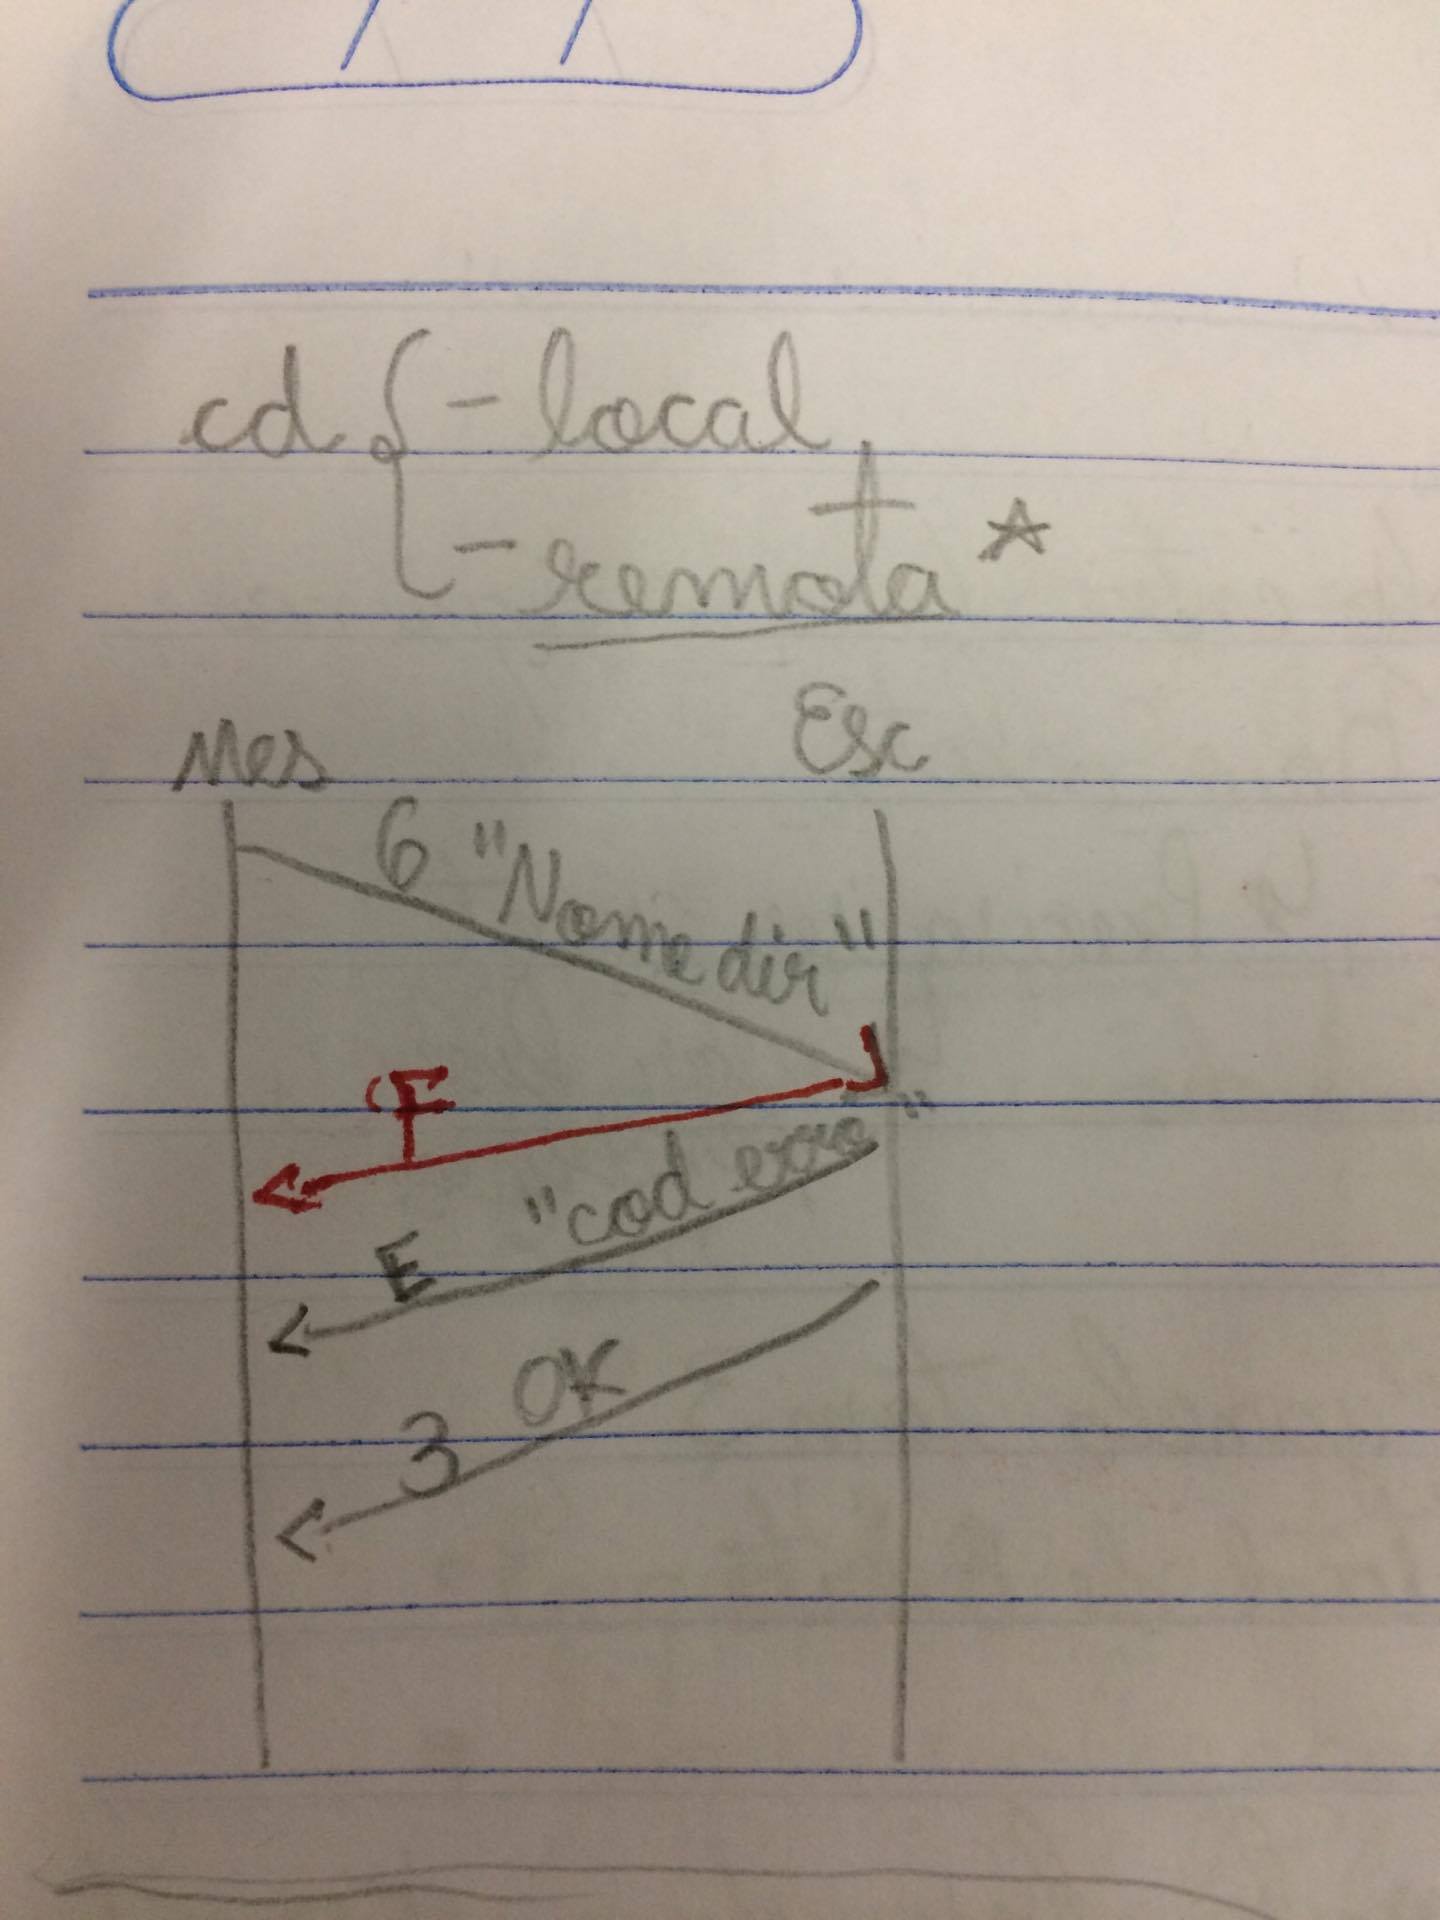 cd { - local
- remota ☆
Mes Esc
6 "Nome dir"
F
E "cod erro"
3 OK